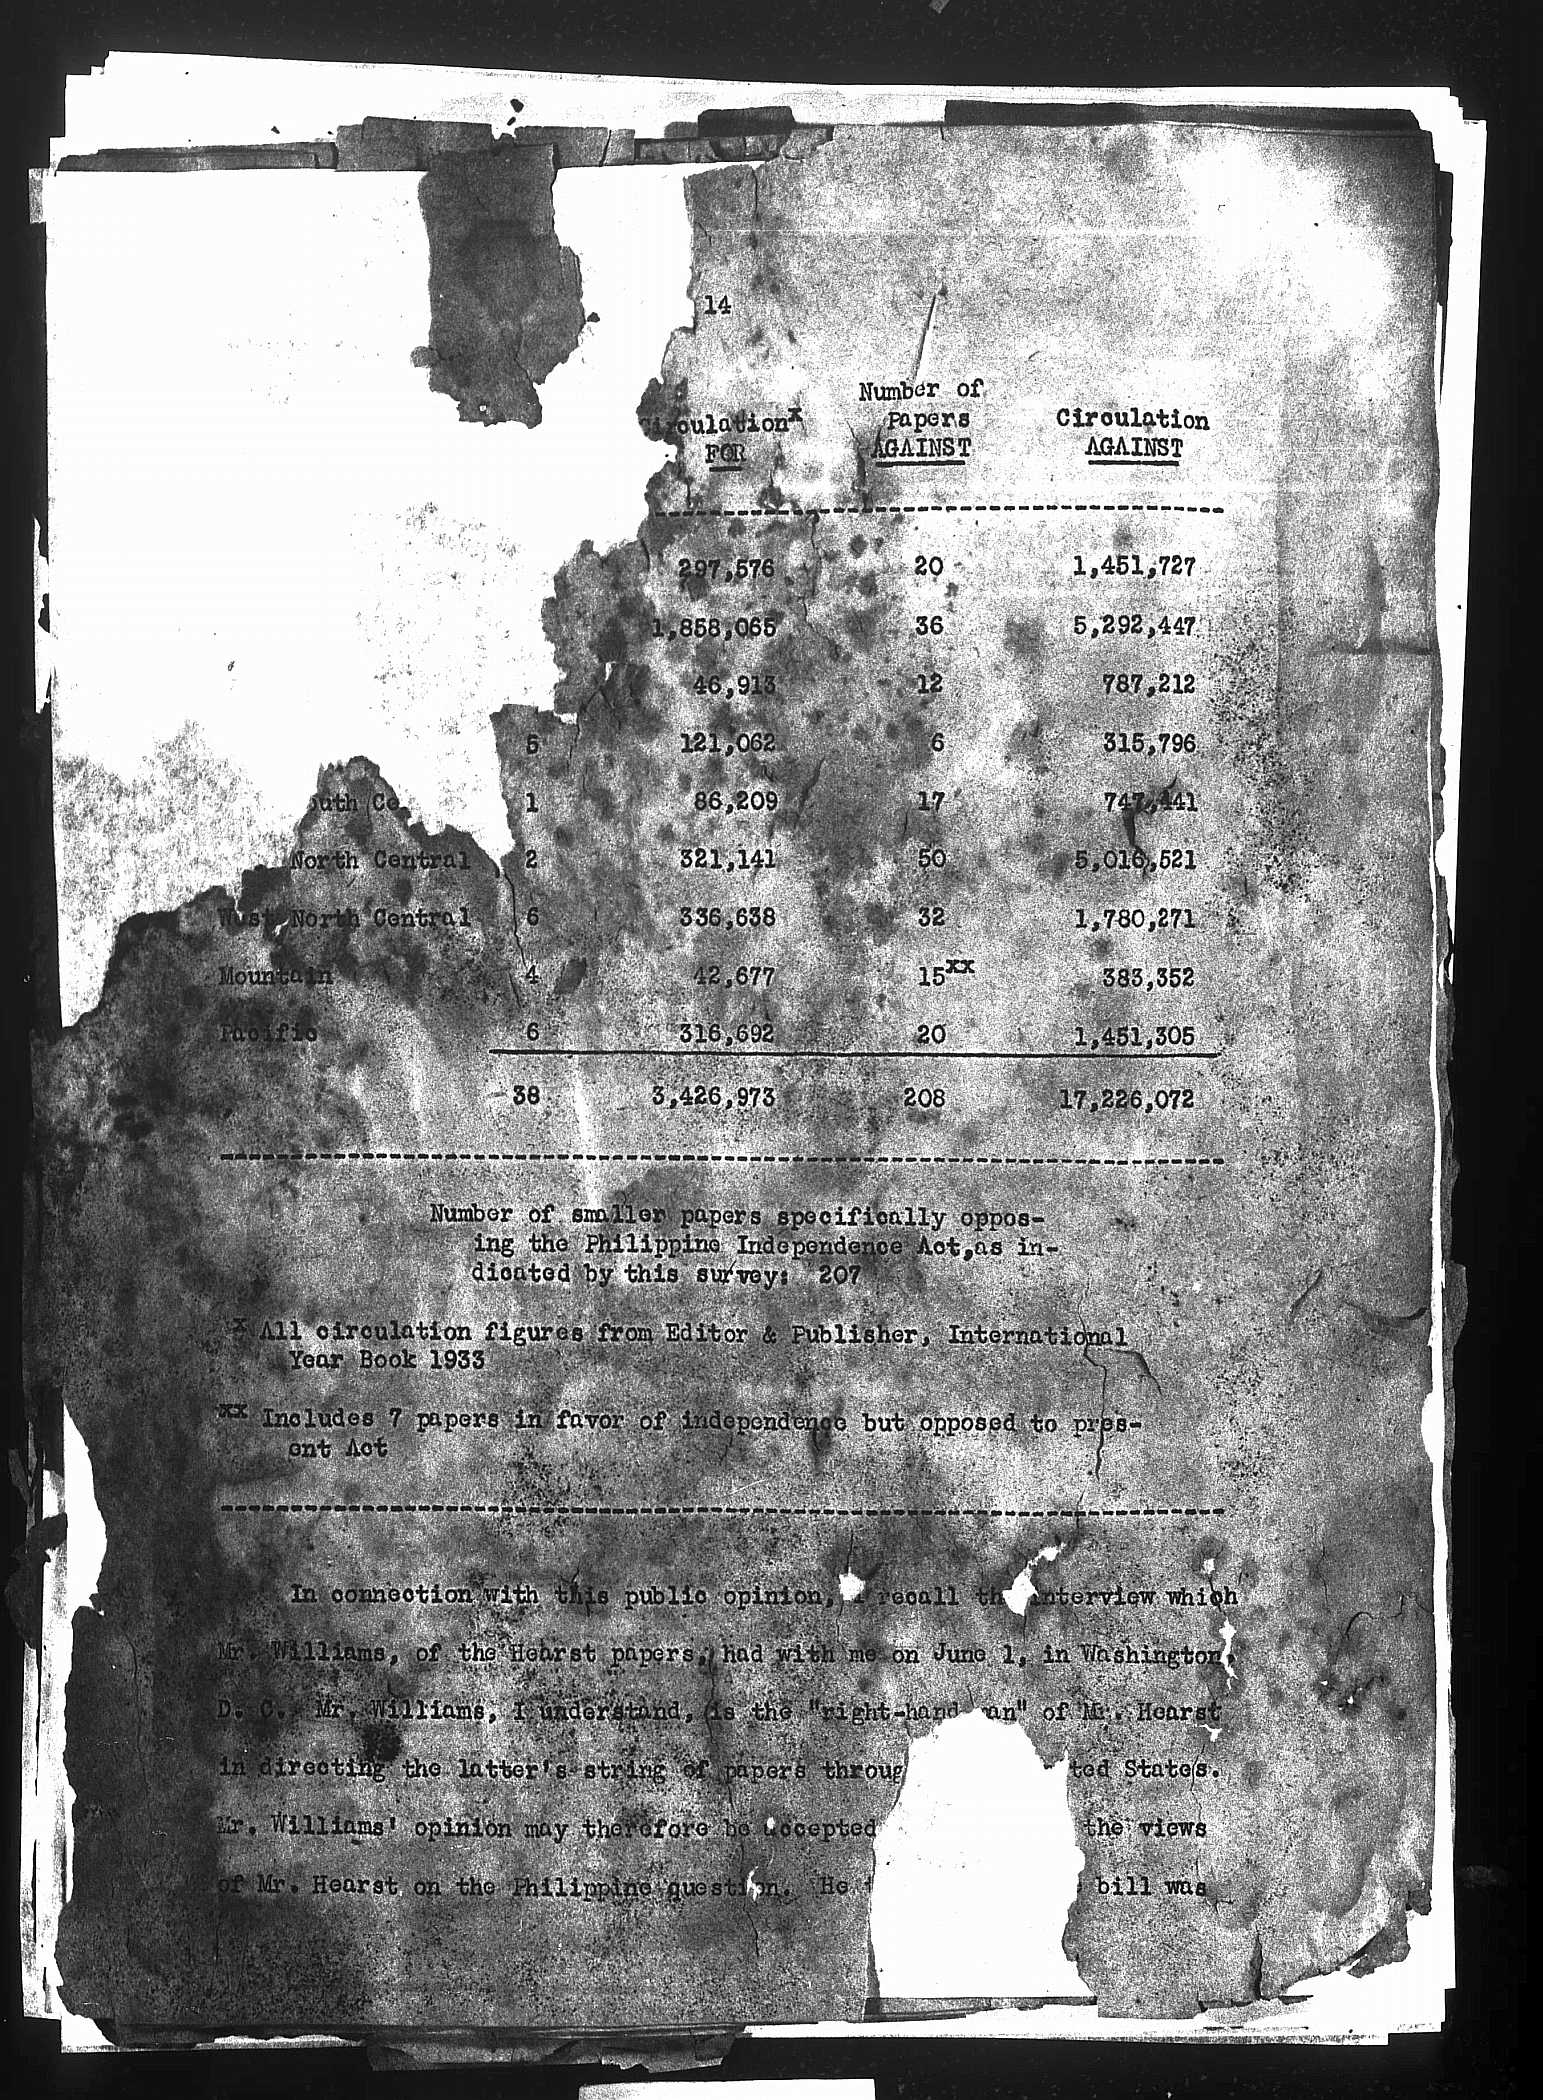 14
Number of
Circulationx Papers Circulation
FOR AGAINST AGAINST
297,576 20 1,451,727
1,858,065 36 5,292,447
46,913 12 787,212
5 121,062 6 315,796
outh Ce 1 86,209 17 747,441
North Central 2 321,141 50 5,016,521
West North Central 6 336,638 32 1,780,271
Mountain 4 42,677 15xx 383,352
Pacific 6 316,692 20 1,451,305
38 3,426,973 208 17,226,072
Number of smaller papers specifically oppos-
ing the Philippine Independence Act,as in-
dicated by this survey: 207
x All circulation figures from Editor & Publisher, International
Year Book 1933
xx Includes 7 papers in favor of independence but opposed to pres-
ent Act
In connection with this public opinion, I recall th interview which
Mr. Williams, of the Hearst papers, had with me on June 1, in Washington,
D. C. Mr. Williams, I understand, is the "right-hand an" of Mr. Hearst
in directing the latter's string of papers throug ted States.
Mr. Williams' opinion may therefore be accepted the views
of Mr. Hearst on the Philippine question. He bill was